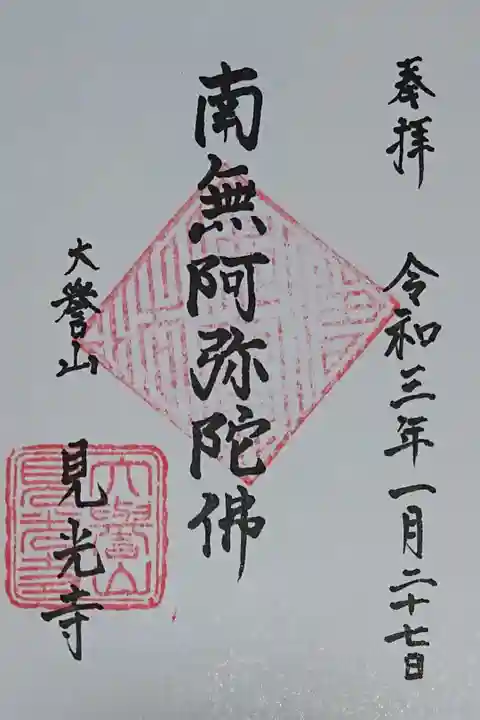 奉拝 令和三年一月二十七日
南無阿弥陀佛
大誉山 見光寺